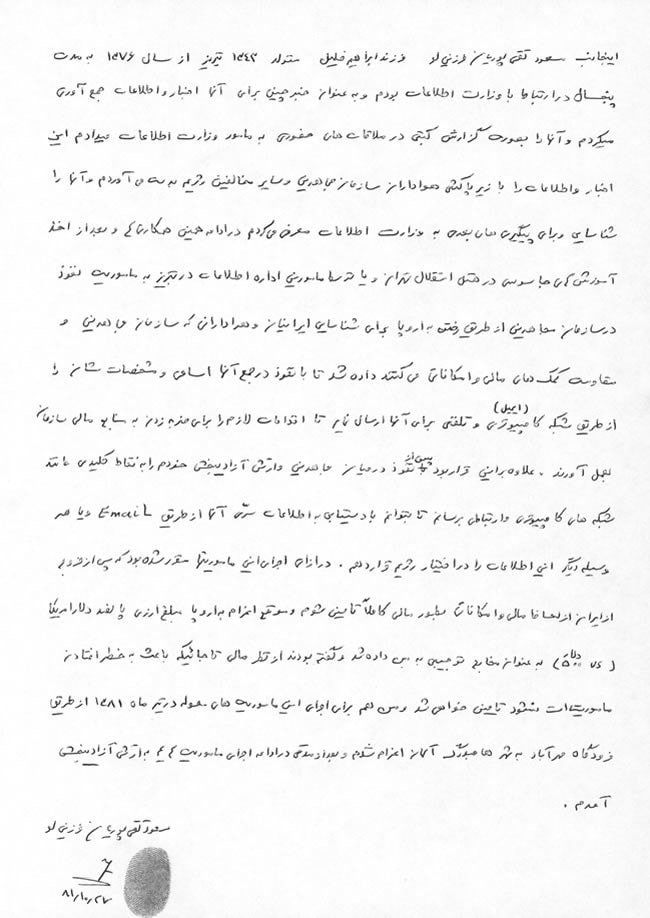 اینجانب مسعود تقی پوریان فرزند ابراهیم خلیل متولد ۱۳۴۳ تبریز از سال ۱۳۷۶ به مدت
پنجسال در ارتباط با وزارت اطلاعات بودم و به عنوان خبرچینی برای آنها اخبار و اطلاعات جمع آوری
میکردم و آنها را بصورت گزارش کتبی در ملاقات های حضوری به مامور وزارت اطلاعات میدادم این
اخبار و اطلاعات را با زیر پاکشی هواداران سازمان مجاهدین و سایر مخالفین رژیم بدست می آوردم و آنها را
شناسایی و برای پیگیری های بعدی به وزارت اطلاعات معرفی می کردم در ادامه همین همکاری ها و بعد از اخذ
آموزش های جاسوسی در هتل استقلال تهران و یا توسط مامورین اداره اطلاعات در تبریز به ماموریت نفوذ
در سازمان مجاهدین از طریق رفتن به اروپا برای شناسایی ایرانیان و هوادارانی که سازمان مجاهدین و
مقاومت کمک های مالی و امکاناتی می کنند داده شد تا با نفوذ در جمع آنها اسامی و مشخصات شان را
از طریق شبکه کامپیوتری (ایمیل) و تلفنی برای آنها ارسال نمایم تا اقدامات لازم را برای ضربه زدن به منابع مالی سازمان
بعمل آورند . علاوه بر این قرار بود پس از نفوذ در میان مجاهدین و ارتش آزادیبخش خودم را به نقاط کلیدی مانند
شبکه های کامپیوتری و ارتباطی برسانم تا بتوانم با دستیابی به اطلاعات سری آنها از طریق Email و یا هر
وسیله دیگر این اطلاعات را در اختیار رژیم قرار دهم . در ازای اجرای این ماموریتها مقرر شده بود که پس از خروج
از ایران از لحاظ مالی و امکاناتی بطور کاملاً تامین شوم و موقع اعزام به اروپا مبلغ ارزی پانصد دلار امریکا
(۵۰۰ دلار us) به عنوان مخارج توجیبی به من داده شد و گفته بودند از نظر مالی تا جائیکه باعث به خطر افتادن
ماموریت ات نشود تامین خواهی شد و من هم برای اجرای این ماموریت های محوله در تیر ماه ۱۳۸۱ از طریق
فرودگاه مهرآباد به شهر هامبورگ آلمان اعزام شدم و بعد از مدتی در ادامه اجرای ماموریت هایم به ارتش آزادیبخش
آمدم .
مسعود تقی پوریان
۸۱/۱۰/۲۷